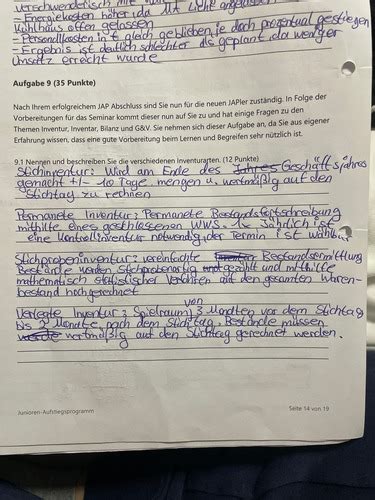 verschwenderisch mit
-Energiekosten höher da LIT Licht angelassen
Kühlhaus offen gelassen
-Personalkosten in € gleich geblieben, je doch prozentual gestiegen
-Ergebnis ist deutlich schlechter als geplant da weniger
Umsatz erreicht wurde
Aufgabe 9 (35 Punkte)
Nach Ihrem erfolgreichem JAP Abschluss sind Sie nun für die neuen JAPler zuständig. In Folge der
Vorbereitungen für das Seminar kommt dieser nun auf Sie zu und hat einige Fragen zu den
Themen Inventur, Inventar, Bilanz und G&V. Sie nehmen sich dieser Aufgabe an, da Sie aus eigener
Erfahrung wissen, dass eine gute Vorbereitung beim Lernen und Begreifen sehr nützlich ist.
9.1 Nennen und beschreiben Sie die verschiedenen Inventurarten. (12 Punkte)
Stichinventur: Wird am Ende des Jahres Geschäftsjahres
gemacht +/- 10 Tage mengen u. wertmäßig auf den
Stichtag zu rechnen
Permanete Inventur: Permanete Bestandsfortschreibung
mithilfe eines geschlossenen WWS. 1x Jährlich ist
eine Kontrollinventur notwendig, der Termin ist wählbar
Stichprobeninventur: vereinfachte Bestandsermittlung
Bestände werden Stichprobenartig und gezählt und mithilfe
mathematisch statistischer Verfahren auf den gesamten Waren-
bestand hochgerechnet
von
Verlegte Inventur: Spielraum 3 Monaten vor dem Stichtag
bis 2 Monate nach dem Stichtag, Bestände müssen
werde wertmäßig auf den Stichtag gerechnet werden.
Junioren-Aufstiegsprogramm
Seite 14 von 19